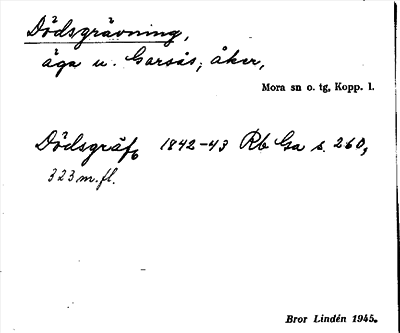 Dödsgrävning,
äga u. Garsås; åker,
Mora sn o. tg, Kopp. l.
Dödsgräf, 1842-43 Rb Ga s. 260,
323 m. fl.
Bror Lindén 1945.